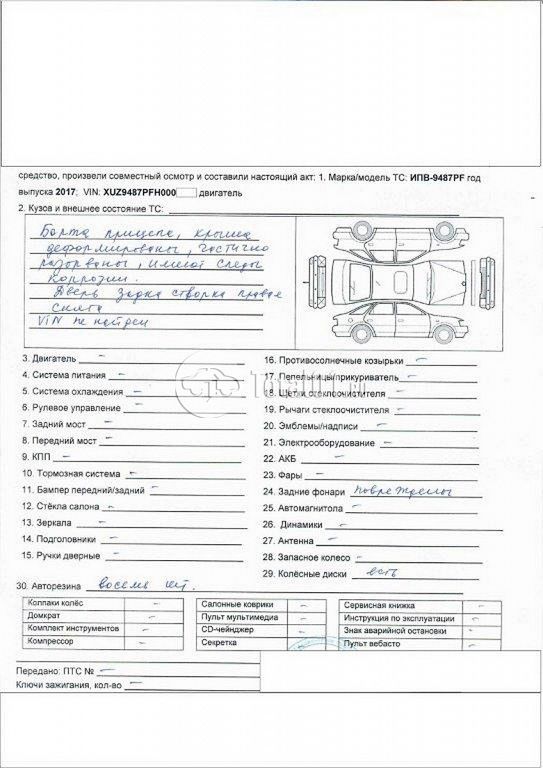 средство, произвели совместный осмотр и составили настоящий акт: 1. Марка/модель ТС: ИПВ-9487PF год
выпуска 2017; VIN: XUZ9487PFH000 двигатель
2. Кузов и внешнее состояние ТС:
Борта прицепа, крыша
деформированы, частично
разорваны, имеют следы
коррозии.
Дверь задка створка правая
снята
VIN не найден
3. Двигатель –
4. Система питания –
5. Система охлаждения –
6. Рулевое управление –
7. Задний мост –
8. Передний мост –
9. КПП –
10. Тормозная система –
11. Бампер передний/задний –
12. Стёкла салона –
13. Зеркала –
14. Подголовники –
15. Ручки дверные –
16. Противосолнечные козырьки –
17. Пепельницы/прикуриватель –
18. Щетки стеклоочистителя –
19. Рычаги стеклоочистителя –
20. Эмблемы/надписи –
21. Электрооборудование –
22. АКБ –
23. Фары –
24. Задние фонари повреждены
25. Автомагнитола –
26. Динамики –
27. Антенна –
28. Запасное колесо –
29. Колёсные диски есть
30. Авторезина восемь шт.
Колпаки колёс –
Домкрат –
Комплект инструментов –
Компрессор –
Салонные коврики –
Пульт мультимедиа –
CD-чейнджер –
Секретка –
Сервисная книжка –
Инструкция по эксплуатации –
Знак аварийной остановки –
Пульт вебасто –
Передано: ПТС № –
Ключи зажигания, кол-во –